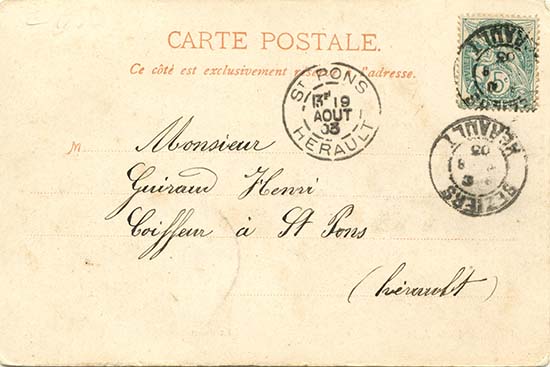 CARTE POSTALE.
Ce côté est exclusivement l'adresse.
ST PONS
19
AOUT
03
HERAULT
5
HERAULT
03
BEZIERS
HERAULT
03
BEZIERS
M
Monsieur
Guiraud Henri
Coiffeur à St Pons
(Hérault)